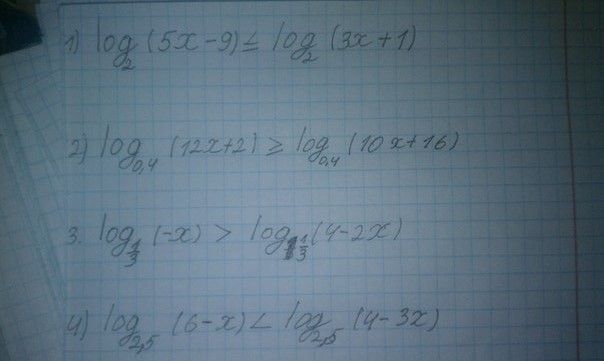 1) log₂ (5x-9) ≤ log₂ (3x+1)
2) log₀,₄ (12x+2) ≥ log₀,₄ (10x+16)
3. log_{1/3} (-x) > log_{1/3} (4-2x)
4) log₂,₅ (6-x) < log₂,₅ (4-3x)